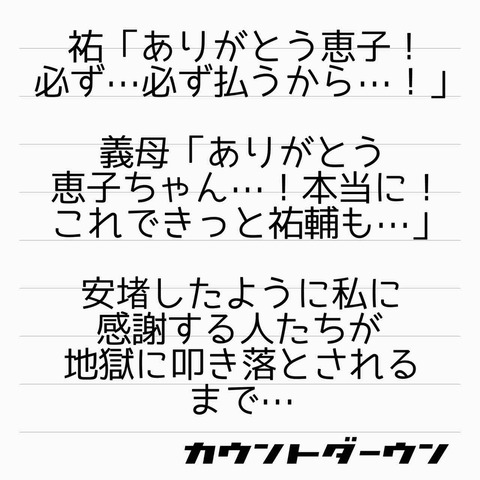 祐「ありがとう恵子！
必ず…必ず払うから…！」
義母「ありがとう
恵子ちゃん…！本当に！
これできっと祐輔も…」
安堵したように私に
感謝する人たちが
地獄に叩き落とされる
まで…
カウントダーウン